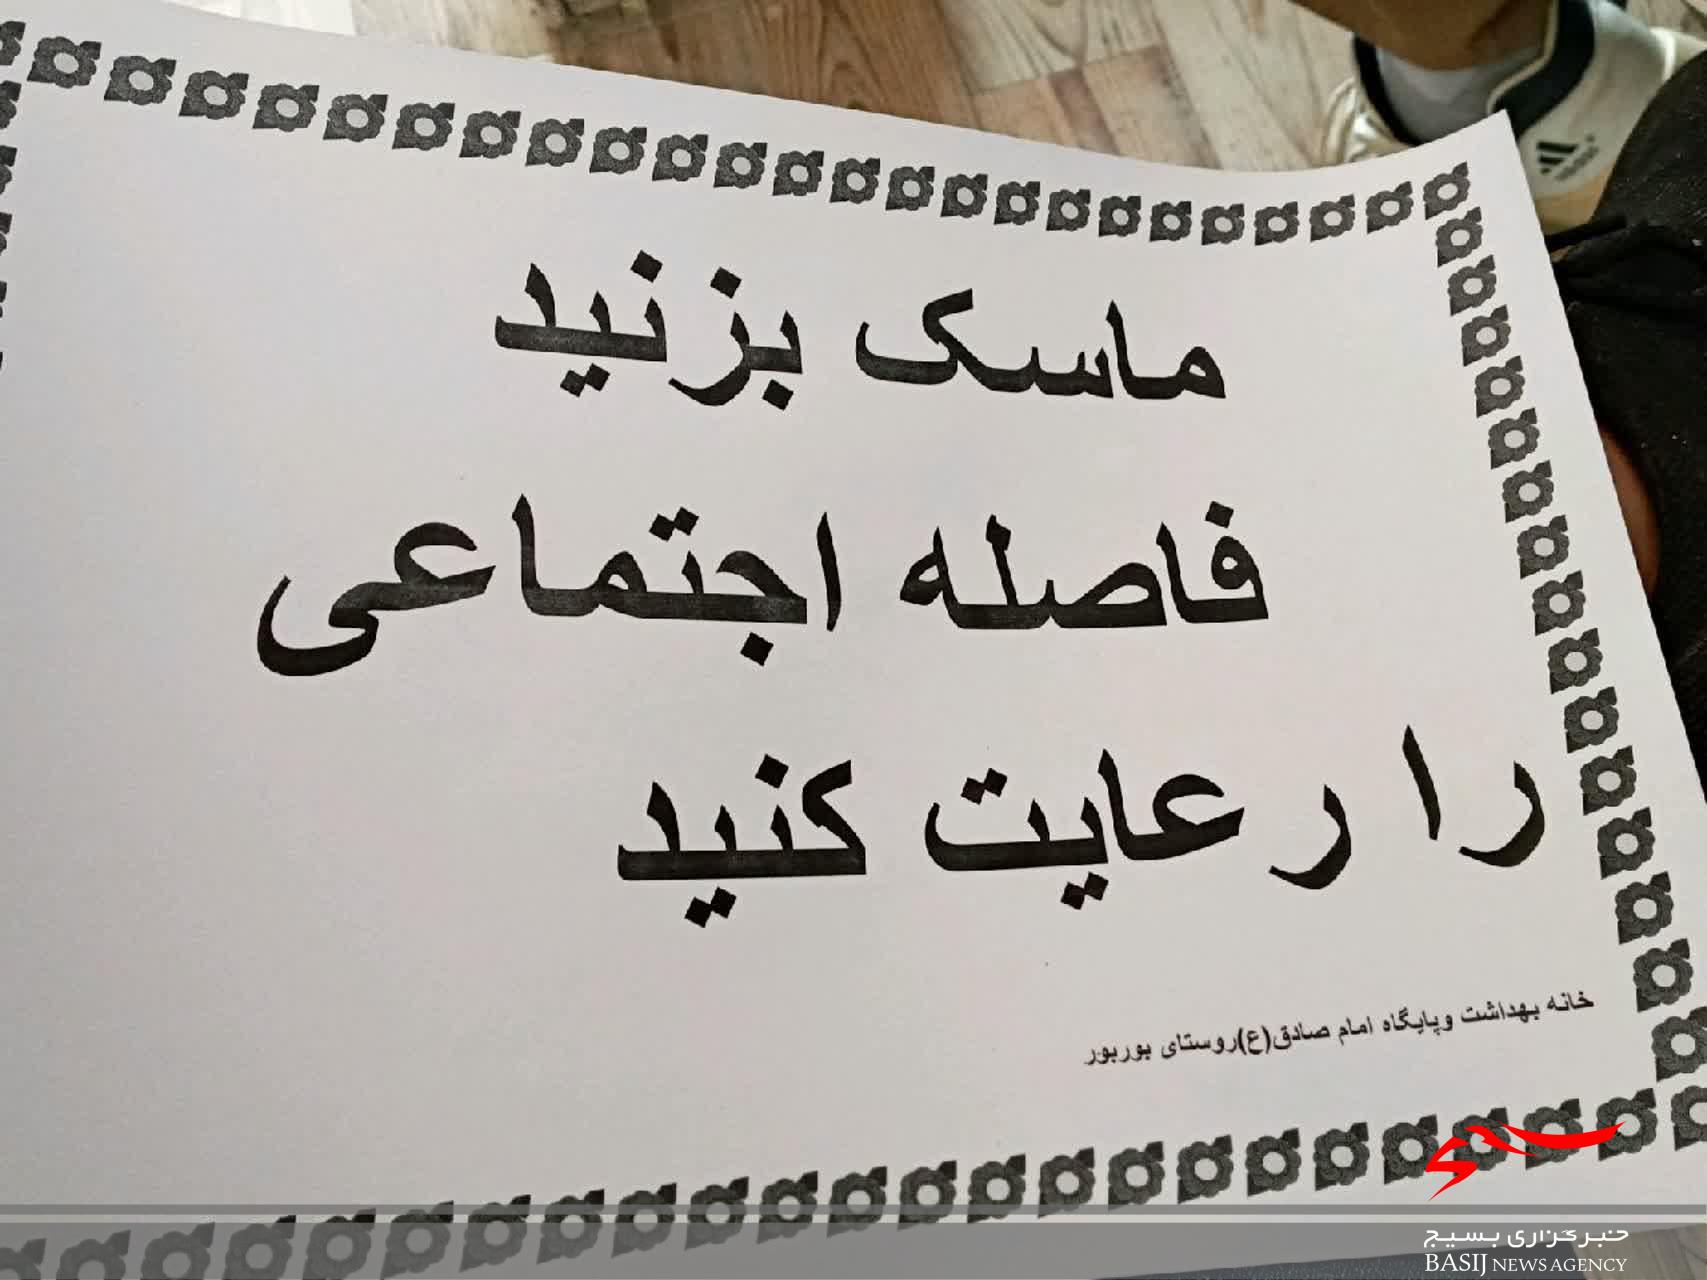 ماسک بزنید
فاصله اجتماعی
را رعایت کنید
خانه بهداشت وپایگاه امام صادق(ع)روستای بوربور
خبرگزاری بسیج
BASIJ NEWS AGENCY